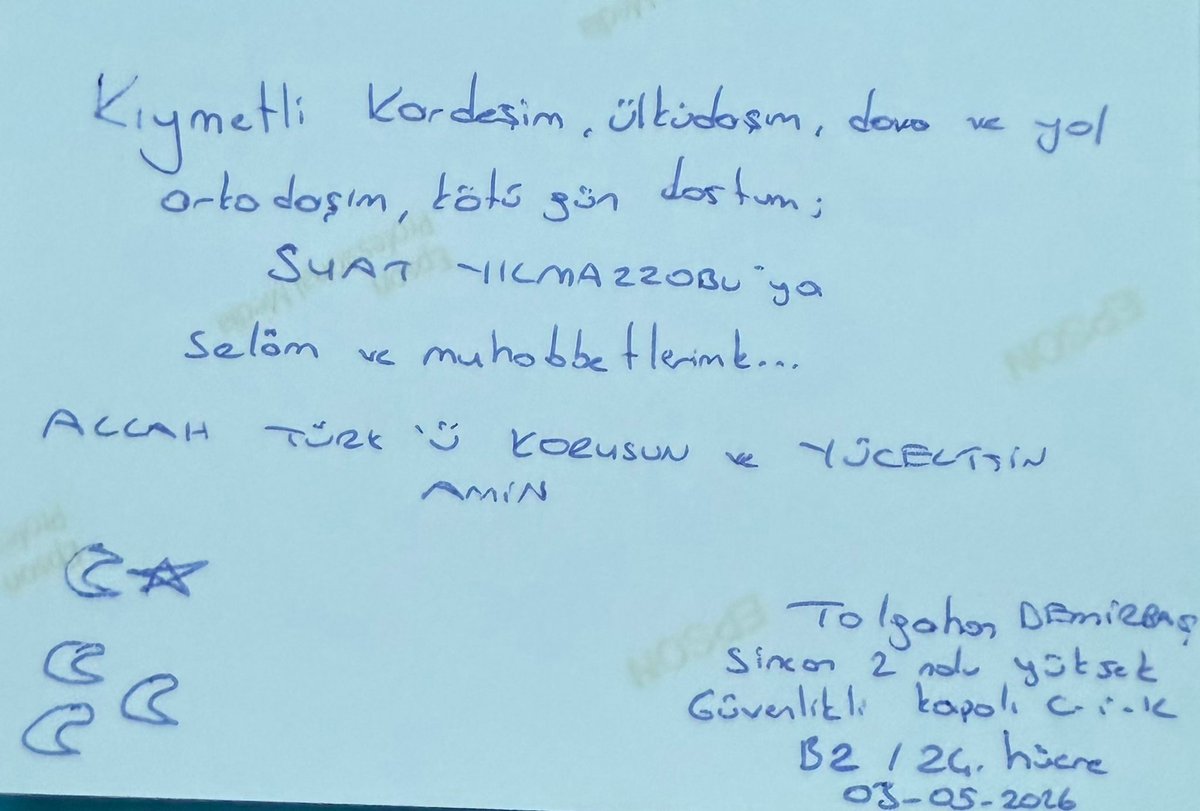 Kıymetli Kardeşim, ülküdaşım, dava ve yol
ortadaşım, kötü gün dostum;
SUAT YILMAZZOBU'ya
Selâm ve muhabbetlerimle...
ALLAH TÜRK'Ü KORUSUN ve YÜCELTSİN
AMİN
Tolgahan DEMİRBAŞ
Sincan 2 nolu yüksek
Güvenlikli kapalı C.İ.K
B2 / 24. hücre
03-05-2026